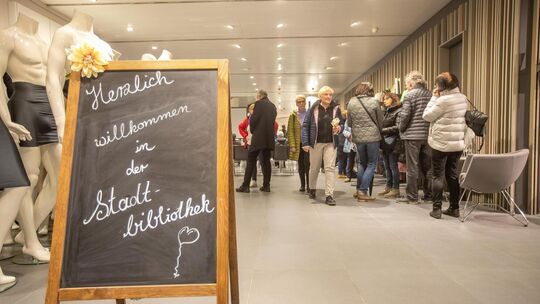 Herzlich
willkommen
in
der
Stadt-
bibliothek